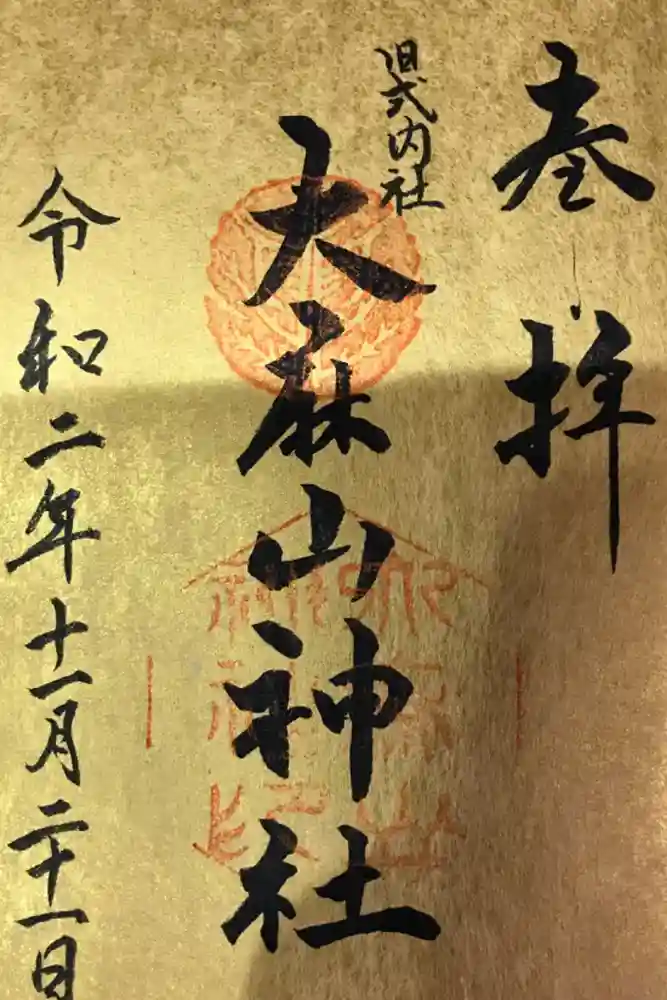 奉拝
旧式内社
大麻山神社
令和二年十一月二十一日